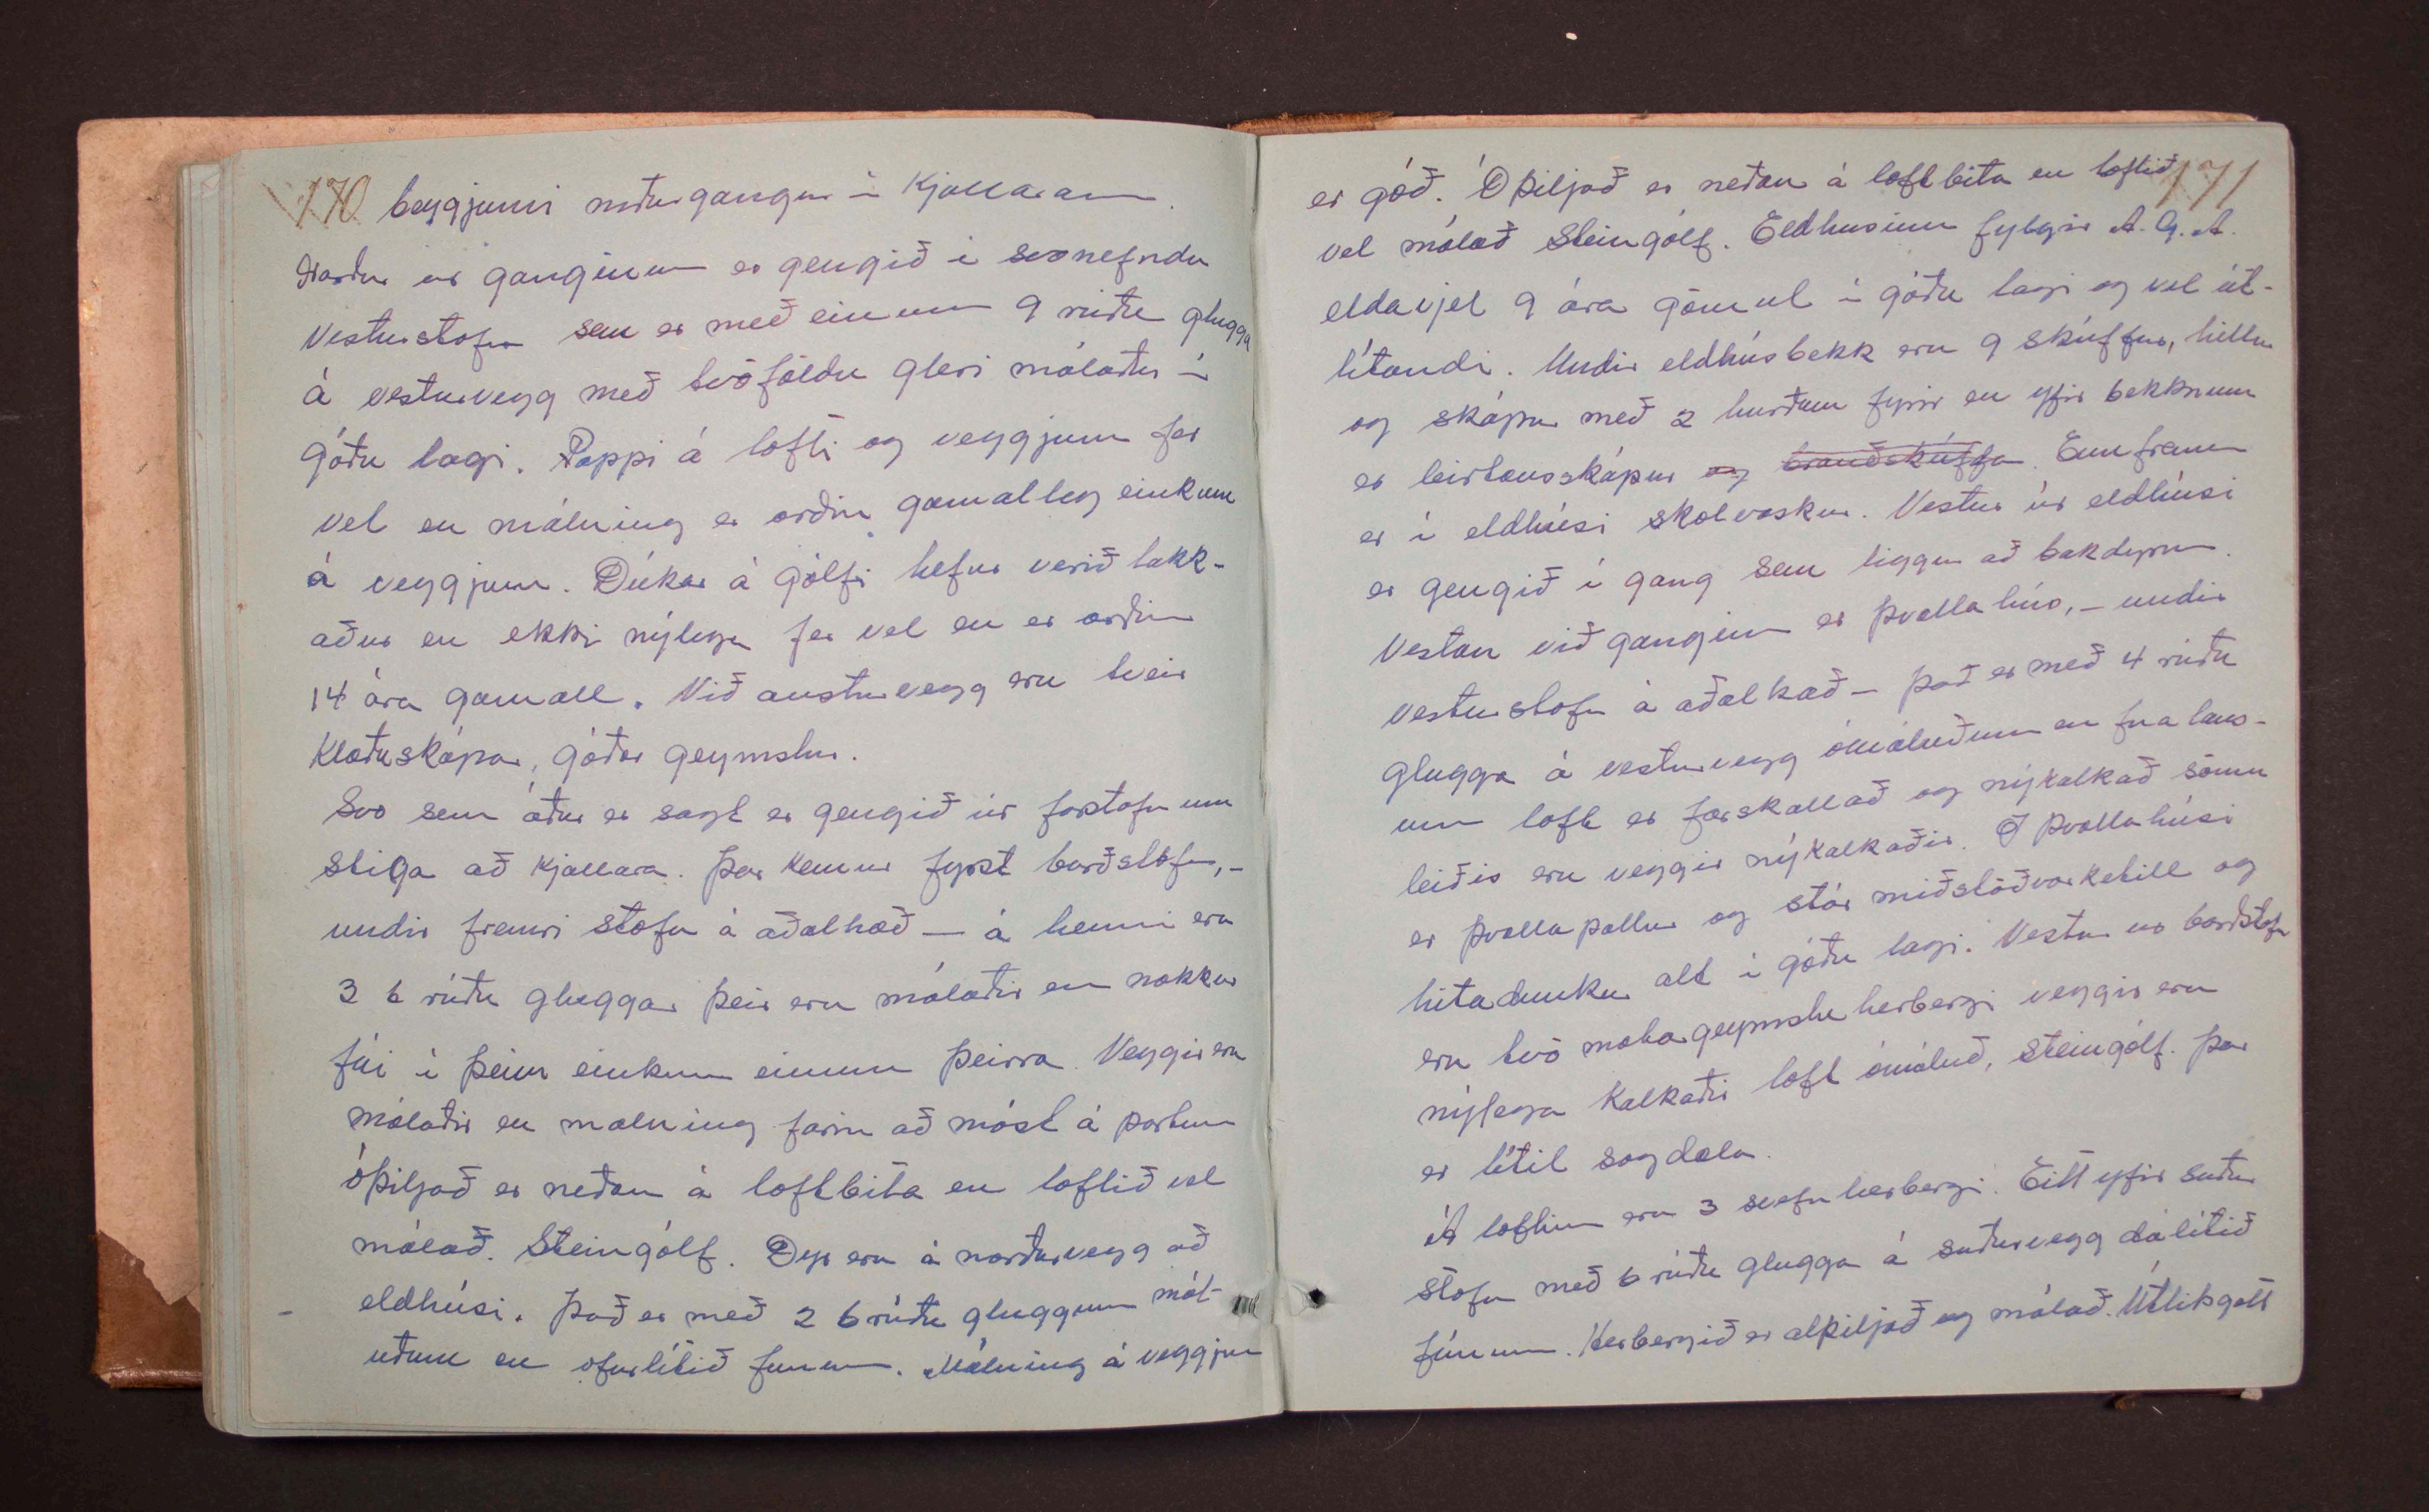 170 byggjunni niðurgangur í Kjallarann.
Norður úr ganginum er gengið í svonefndu
Vesturstofu sem er með einum 9 rúðu glugga
á vesturvegg með tvöföldu gleri málaður í
góðu lagi. Pappi á lofti og veggjum fer
vel en málning er orðin gamalleg einkum
á veggjum. Dúkar á gólfi hefur verið lakk-
aður en ekki nýlega fer vel en er orðin
14 ára gamall. Við austurvegg eru tveir
Klæðaskápar, góðar geymslur.
Svo sem áður er sagt er gengið úr forstofu um
stiga að kjallara. Þar kemur fyrst borðstofa,-
undir fremri stofu á aðalhæð - á henni eru
3 6 rúðu gluggar þeir eru málaðir en nokkur
fúi í þeim einkum einum þeirra. Veggir eru
málaðir en málning farin að mást á pörtum
óþiljað er neðan á loftbita en loftið vel
málað. Steingólf. Dyr eru á norðurvegg að
eldhúsi. Það er með 2 6 rúðu gluggum mál-
uðum en ofurlítið fúnum. Málning á veggjum
171
er góð. Óþiljað er neðan á loftbita en loftið
vel málað Steingólf. Eldhúsinu fylgir A.G.A.
eldavjel 9 ára gömul í góðu lagi og vel út-
lítandi. Undir eldhúsbekk eru 9 skúffur, hillur
og skápur með 2 hurðum fyrir en yfir bekknum
er leirtausskápur og brauðskúffa. Enn fremur
er í eldhúsi skolvaskur. Vestur úr eldhúsi
er gengið í gang sem liggur að bakdyrum.
Vestan við ganginn er þvottahús, - undir
vesturstofu á aðalhæð - það er með 4 rúðu
glugga á vesturvegg ómáluðum en fúalaus-
um loft er forskallað og nýkalkað sömu
leiðis eru veggir nýkalkaðir. Í þvottahúsi
er þvottapottur og stór miðstöðvarketill og
hitadunkur alt í góðu lagi. Vestur úr borðstofu
eru tvö matargeymslu herbergi veggir eru
nýlega kalkaðir loft ómáluð, steingólf. Þar
er lítil sogdæla.
Á loftinu eru 3 svefnherbergi. Eitt yfir suður
stofu með 6 rúðu glugga á suðurvegg dálítið
fúnum. Herbergið er alþiljað og málað. Útlit gott